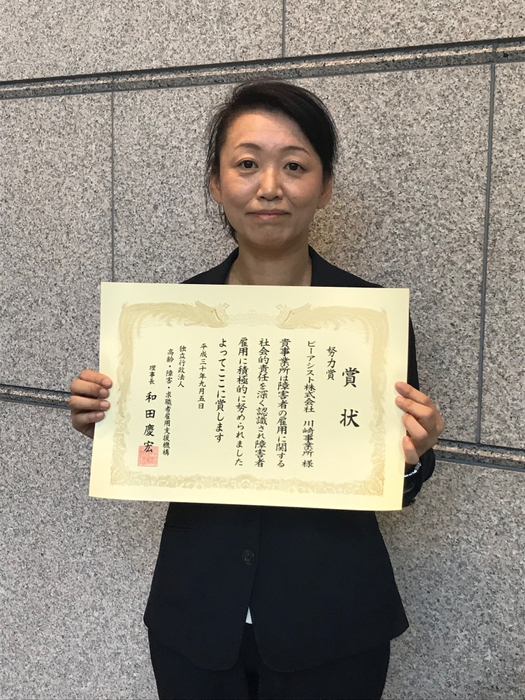 賞状
努力賞
ビーアシスト株式会社 川崎事業所 様
貴事業所は障害者の雇用に関する
社会的責任を深く認識され障害者
雇用に積極的に努められました
よってここに賞します
平成三十年九月五日
独立行政法人
高齢・障害・求職者雇用支援機構
理事長 和田慶宏